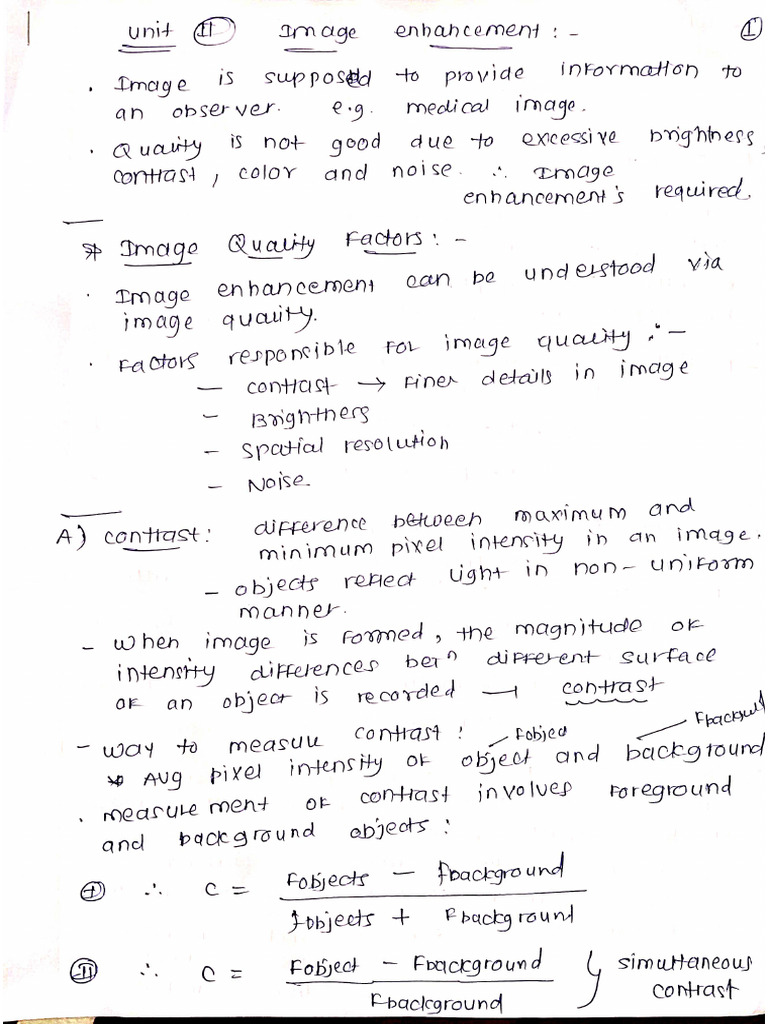 unit II Image enhancement : - 1
. Image is supposed to provide information to
an observer. e.g. medical image.
. Quality is not good due to excessive brightness,
contrast, color and noise. ∴ Image
enhancement's required.
* Image Quality Factors : -
. Image enhancement can be understood via
image quality.
. Factors responsible for image quality : -
- contrast → Finer details in image
- Brightness
- spatial resolution
- Noise.
A) contrast : difference between maximum and
minimum pixel intensity in an image.
- objects reflect light in non-uniform
manner.
- when image is formed, the magnitude of
intensity differences betn different surface
of an object is recorded → contrast
- way to measure contrast : fobject Fbackground
* Avg pixel intensity of object and background
. measurement of contrast involves foreground
and background objects :
I ∴ C = Fobjects - fbackground
fobjects + Fbackground
II ∴ C = Fobject - Fbackground } simultaneous
Fbackground contrast